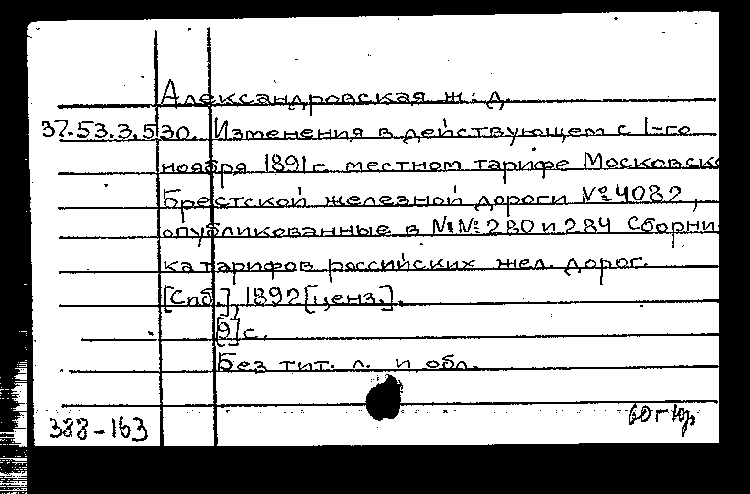 Александровская ж. д.
37.53.3.530. Изменения в действующем с 1-го
ноября 1891 г. местном тарифе Московско
Брестской железной дороги № 4082,
опубликованные в №№ 280 и 284 Сборни
ка тарифов российских жел. дорог.
[Спб.], 1892 [ценз.].
[9] с.
Без тит. л. и обл.
388-163